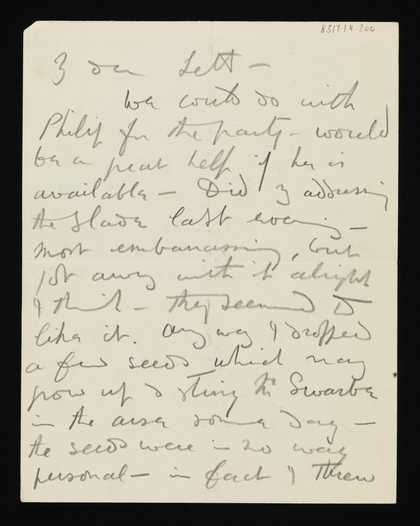 8317.1.4.200
3 dear Lett –
We could do with
Philip for the party – would
be a great help if he is
available – Did my addressing
the Slade last evening –
most embarrassing, but
got away with it alright
I think – they seemed to
like it. Anyway I dropped
a few seeds which may
grow up & sting the
in the arse some day –
the seeds were in no way
personal – in fact I threw